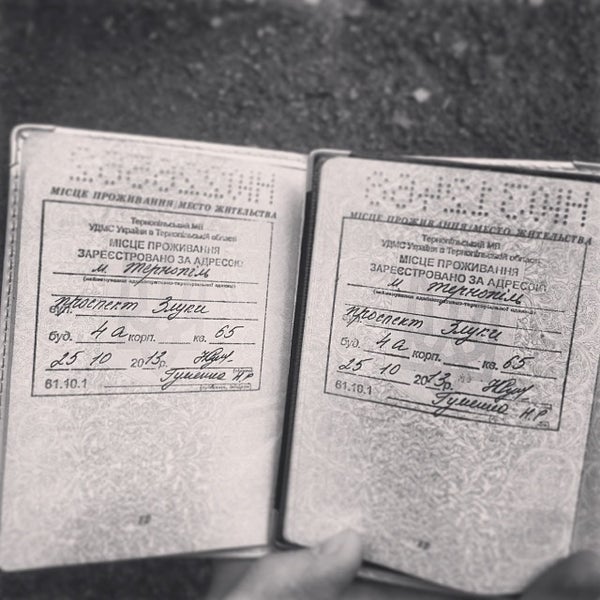 МІСЦЕ ПРОЖИВАННЯ/МЕСТО ЖИТЕЛЬСТВА
Тернопільський МВ
УДМС України в Тернопільській області
МІСЦЕ ПРОЖИВАННЯ
ЗАРЕЄСТРОВАНО ЗА АДРЕСОЮ
м. Тернопіль
(найменування адміністративно-територіальної одиниці)
вул. проспект Злуки
буд. 4а корп. кв. 65
25 10 2013р.
61.10.1
12
МІСЦЕ ПРОЖИВАННЯ/МЕСТО ЖИТЕЛЬСТВА
Тернопільський МВ
УДМС України в Тернопільській області
МІСЦЕ ПРОЖИВАННЯ
ЗАРЕЄСТРОВАНО ЗА АДРЕСОЮ
м. Тернопіль
(найменування адміністративно-територіальної одиниці)
вул. проспект Злуки
буд. 4а корп. кв. 65
25 10 2013р.
61.10.1